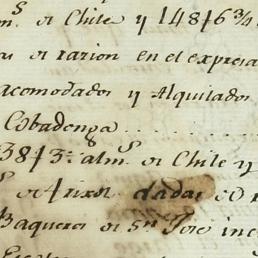 m.s de Chile y 148f6 3/4
as de razion en el expresa
acomodados y Alquilados
Cobadonga . . . . . . . . . .
38f3: alm.s de Chile y
de 4 rixos. dadas de
Baqueros de Sn Jose inc